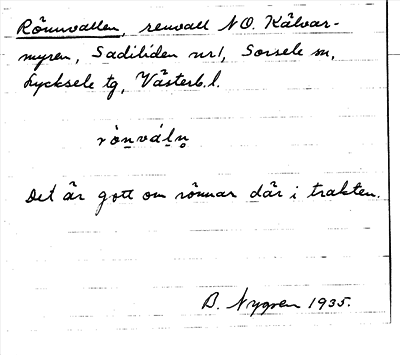 Rönnvallen, renvall NO. Kälvar-
myren, Sadiliden nr 1, Sorsele sn,
Lycksele tg, Västerb. l.
rönváln̥
Det är gott om rönnar där i trakten.
B. Nygren 1935.